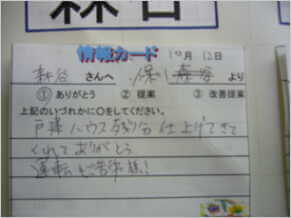 森谷
情報カード 10月12日
森谷 さんへ より
① ありがとう ② 提案 ③ 改善提案
上記のいづれかに○をしてください。
戸建ハウス 仕上げてきて
くれてありがとう
運転ご苦労様!